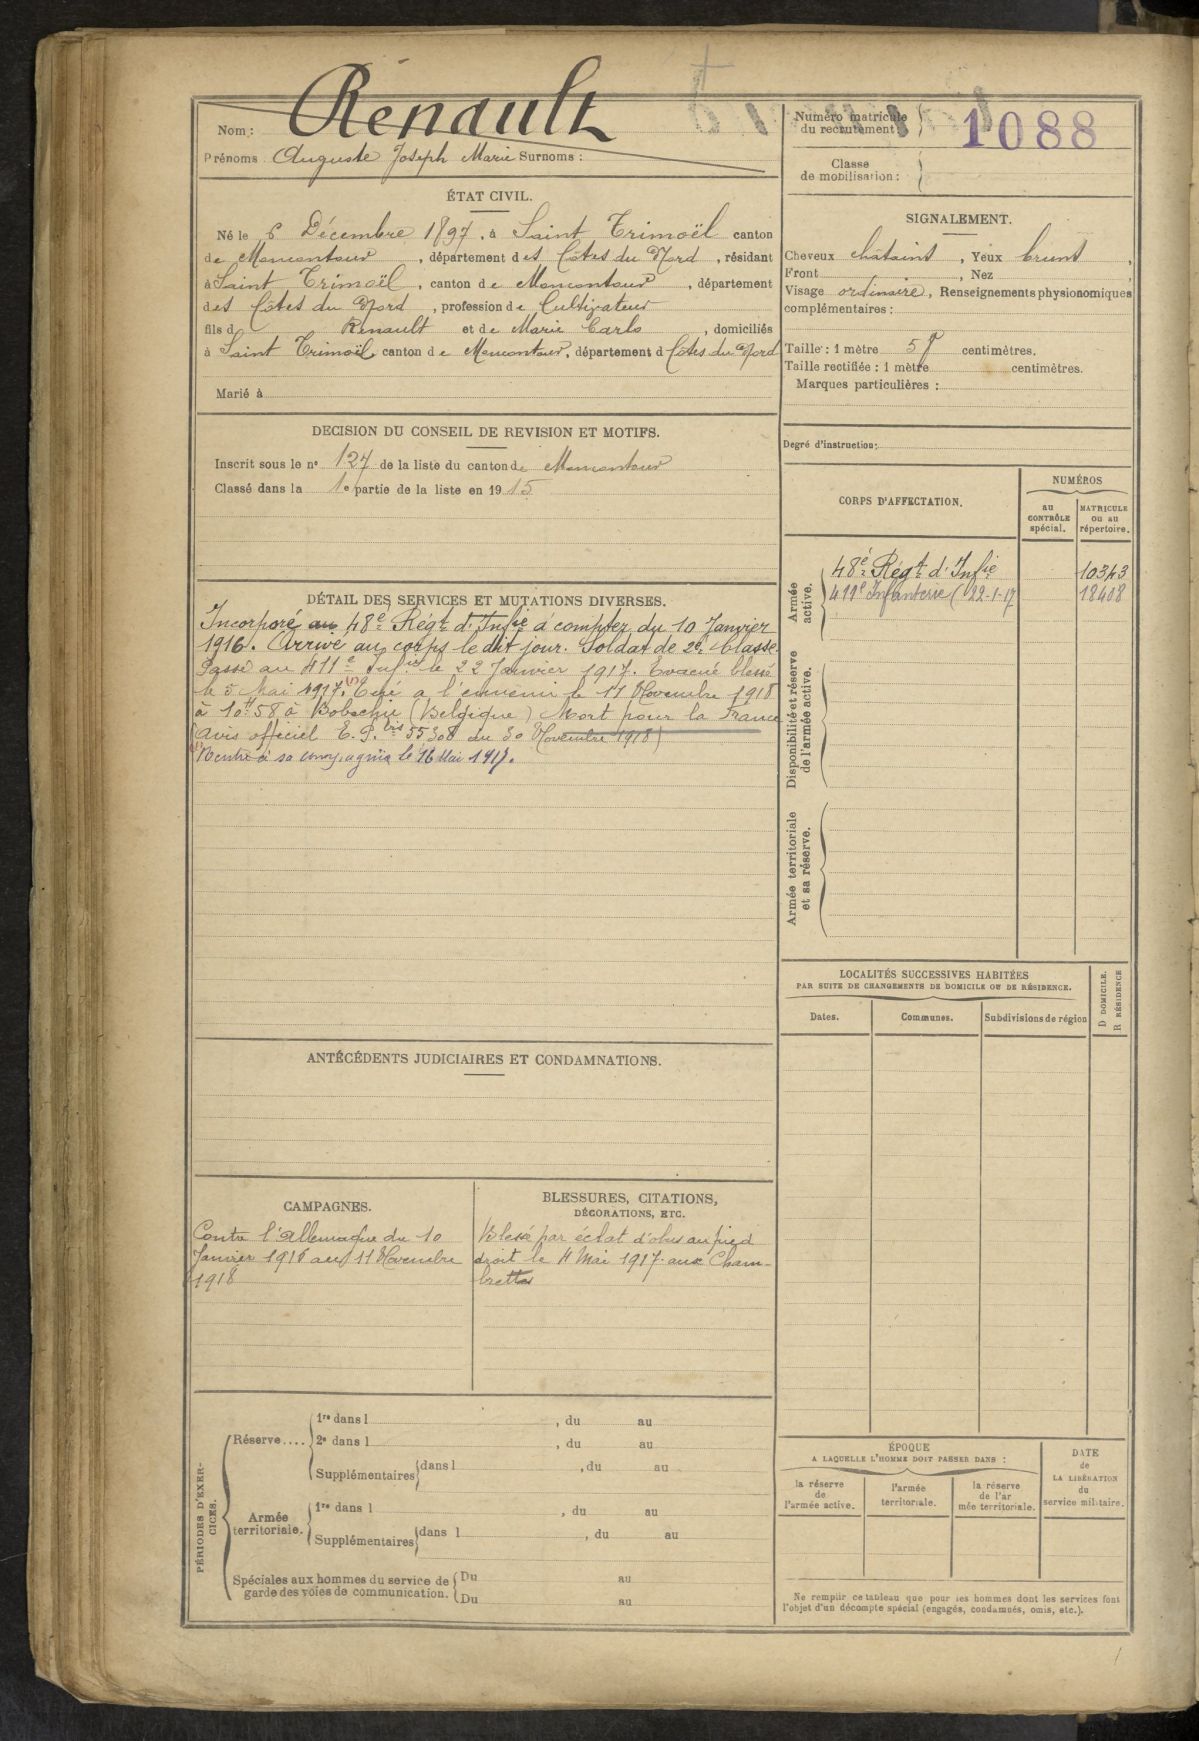 Nom : Renault
Prénoms : Auguste Joseph Marie Surnoms :
ÉTAT CIVIL.
Né le 6 Décembre 1897, à Saint Trimoël canton
de Moncontour, département des Côtes du Nord, résidant
à Saint Trimoël, canton de Moncontour, département
des Côtes du Nord, profession de Cultivateur
fils d Renault et de Marie Carlo, domiciliés
à Saint Trimoël, canton de Moncontour, département d Côtes du Nord
Marié à
DECISION DU CONSEIL DE REVISION ET MOTIFS.
Inscrit sous le n° 127 de la liste du canton de Moncontour
Classé dans la 1e partie de la liste en 1915
DÉTAIL DES SERVICES ET MUTATIONS DIVERSES.
Incorporé au 48e Régt d'Infie à compter du 10 Janvier
1916. Arrivé au corps le dit jour. Soldat de 2e Classe.
Passé au 411e Infie le 22 Janvier 1917. Evacué blessé
le 5 Mai 1917. (1) Tué à l'ennemi le 11 Novembre 1918
à 10h58 à Robechie (Belgique) Mort pour la France
(Avis officiel E.P. bis 55308 du 30 Novembre 1918)
(1) Rentré à sa compagnie le 16 Mai 1917.
ANTÉCÉDENTS JUDICIAIRES ET CONDAMNATIONS.
CAMPAGNES.
Contre l'Allemagne du 10
Janvier 1916 au 11 Novembre
1918
BLESSURES, CITATIONS,
DÉCORATIONS, ETC.
Blessé par éclat d'obus au pied
droit le 4 Mai 1917 aux Cham-
brettes
PÉRIODES D'EXER-
CICES.
Réserve....
1re dans l , du au
2e dans l , du au
Supplémentaires dans l , du au
Armée
territoriale.
1re dans l , du au
Supplémentaires dans l , du au
Spéciales aux hommes du service de
garde des voies de communication.
Du au
Du au
Numéro matricule
du recrutement 1088
Classe
de mobilisation :
SIGNALEMENT.
Cheveux châtains, Yeux bruns,
Front , Nez
Visage ordinaire, Renseignements physionomiques
complémentaires :
Taille : 1 mètre 57 centimètres.
Taille rectifiée : 1 mètre centimètres.
Marques particulières :
Degré d'instruction :
CORPS D'AFFECTATION.
NUMÉROS
au
CONTRÔLE
spécial.
MATRICULE
ou au
répertoire.
Armée
active.
48e Régt d'Infie 10343
411e Infanterie (22-1-17 18408
Disponibilité et réserve
de l'armée active.
Armée territoriale
et sa réserve.
LOCALITÉS SUCCESSIVES HABITÉES
PAR SUITE DE CHANGEMENTS DE DOMICILE OU DE RÉSIDENCE.
Dates. Communes. Subdivisions de région
D DOMICILE.
R RÉSIDENCE
ÉPOQUE
A LAQUELLE L'HOMME DOIT PASSER DANS :
la réserve
de
l'armée active.
l'armée
territoriale.
la réserve
de l'ar
mée territoriale.
DATE
de
LA LIBÉRATION
du
service militaire.
Ne remplir ce tableau que pour les hommes dont les services font
l'objet d'un décompte spécial (engagés, condamnés, omis, etc.).